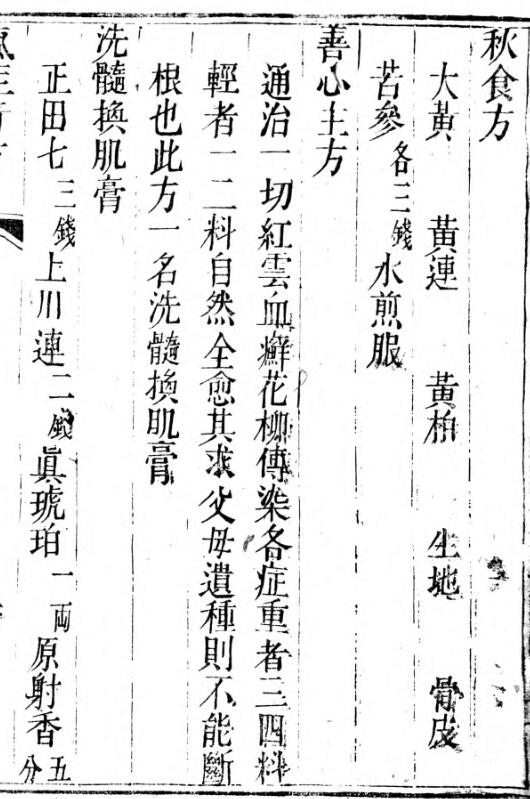 秋食方
大黃　黃連　黃柏　生地　骨皮
苦參各三錢水煎服
善心主方
通治一切紅雲血癬花柳傳染各症重者三四料
輕者一二料自然全愈其求父母遺種則不能斷
根也此方一名洗髓換肌膏
洗髓換肌膏
正田七三錢上川連二錢眞琥珀一両原射香五分